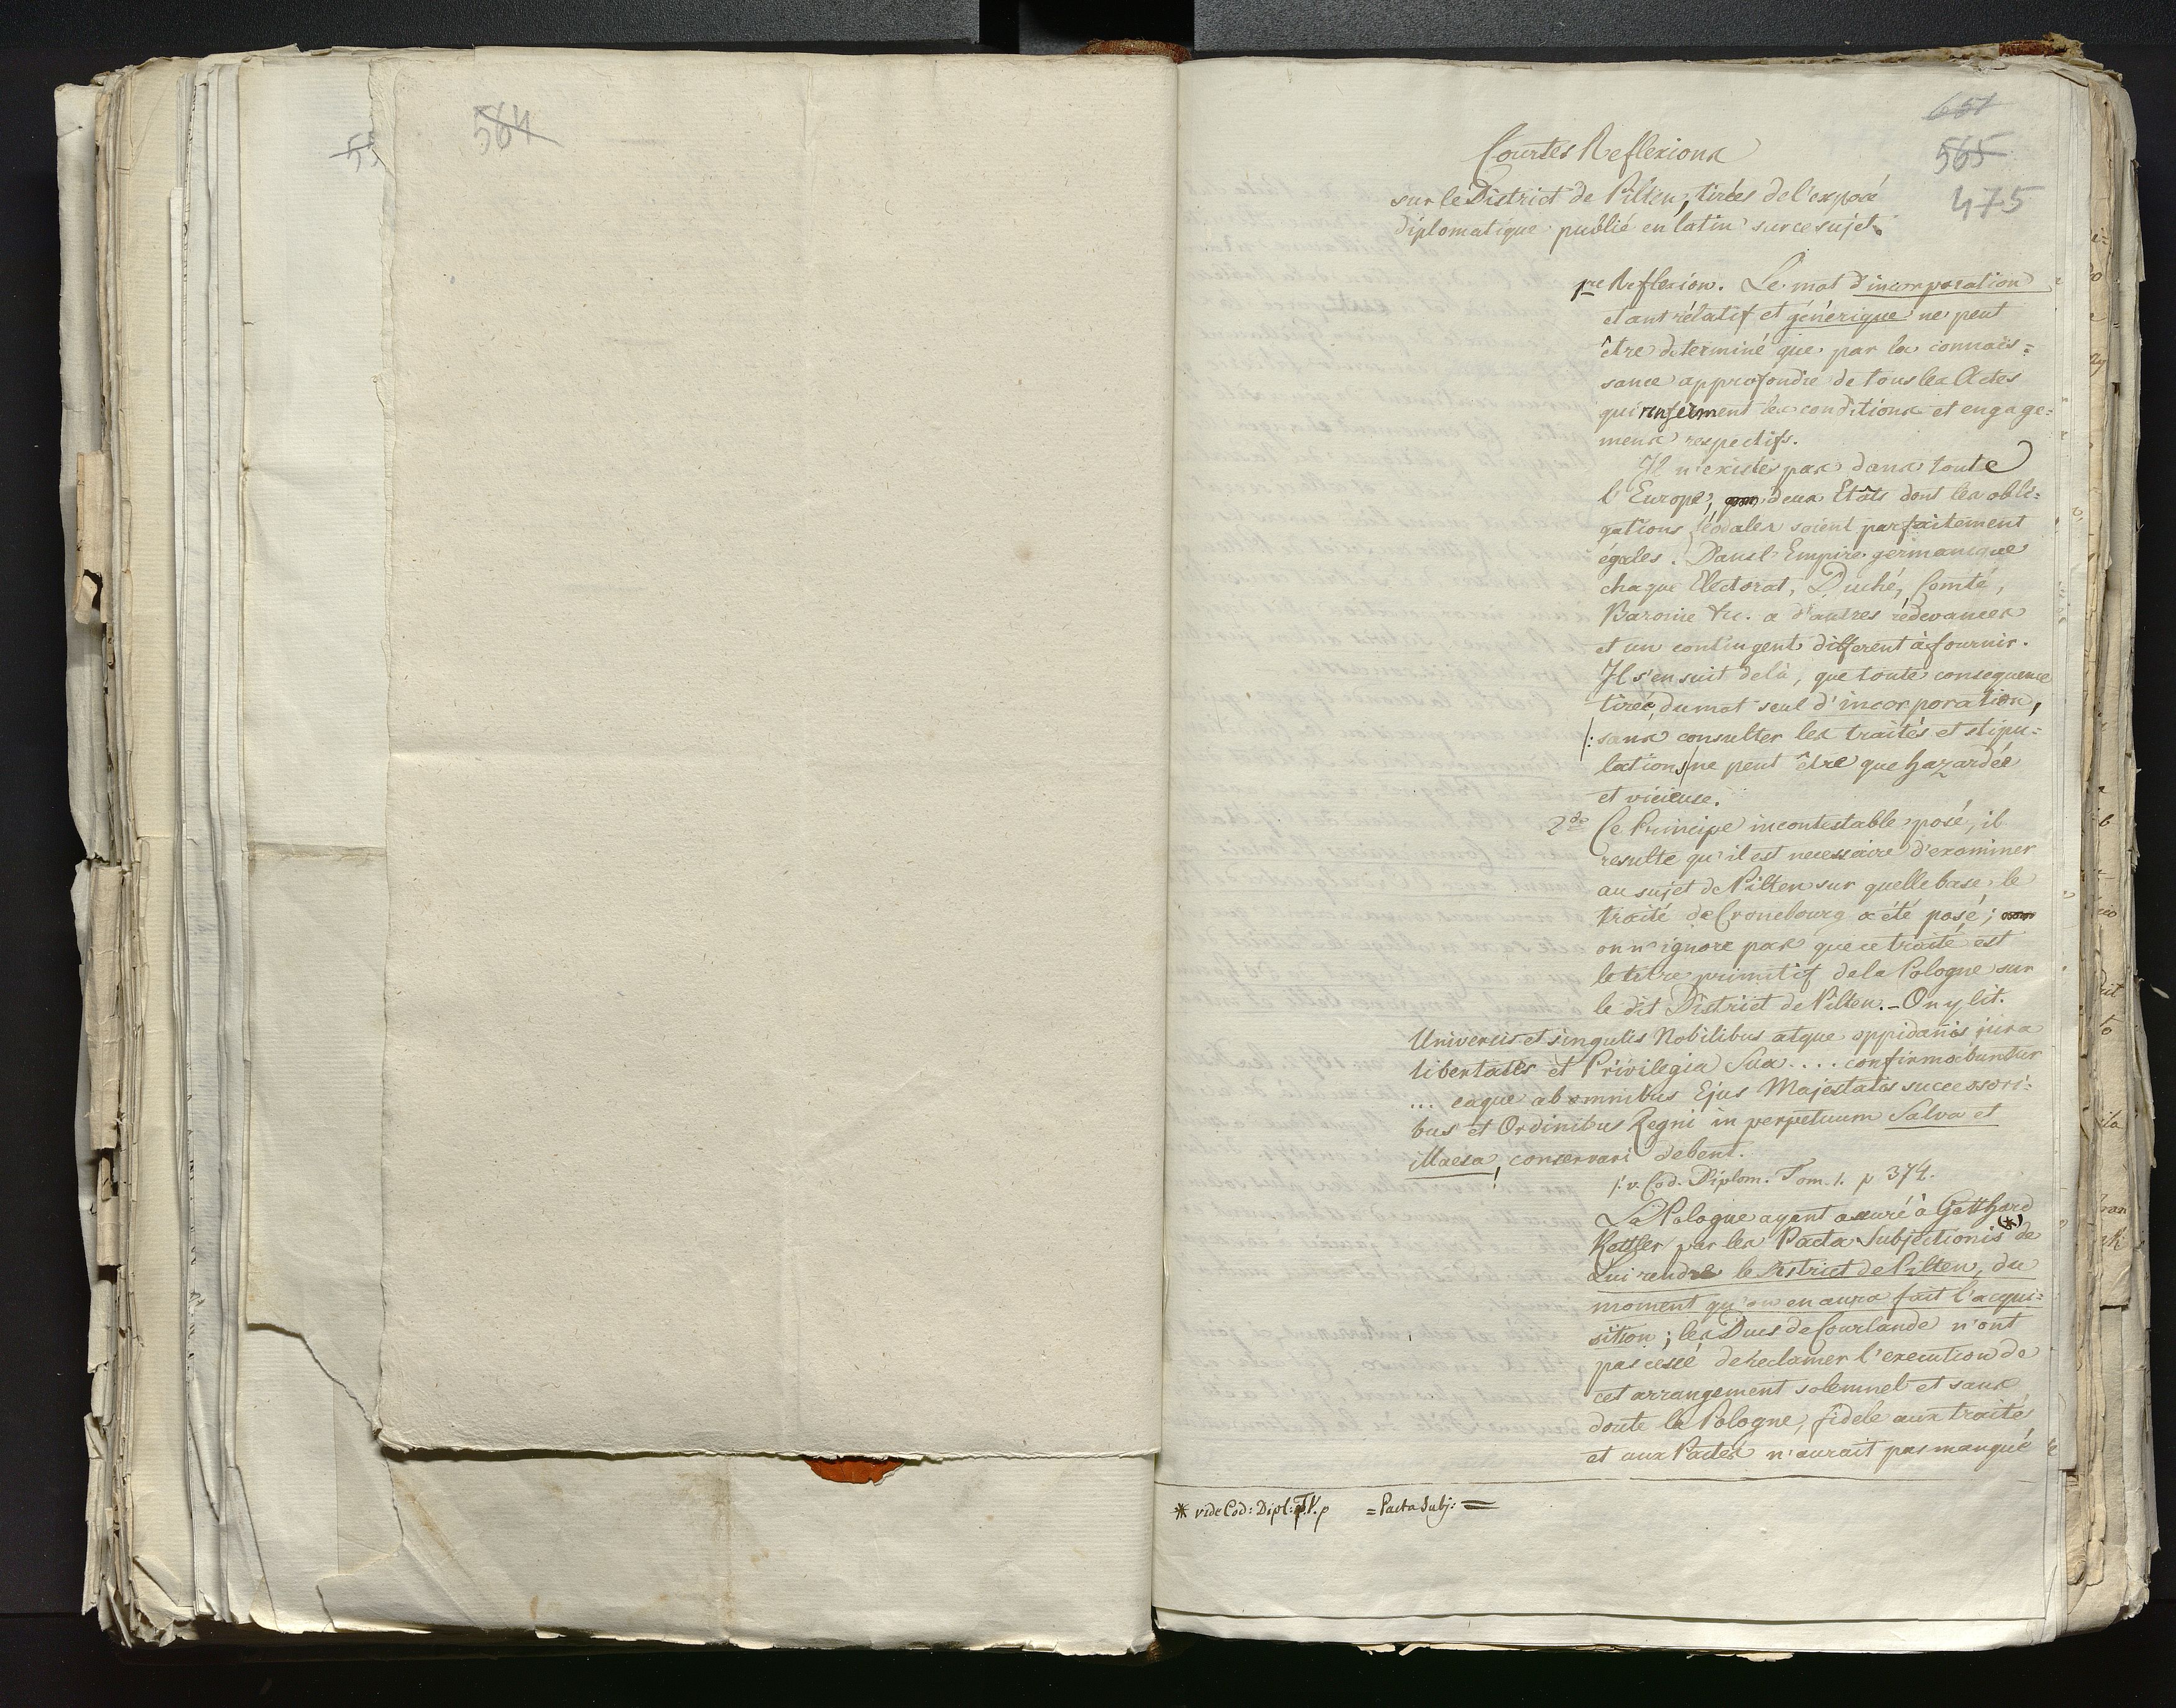 564
55
651
565
475
Courtes Reflexions
sur le District de Pilten, tirées de l'exposé
diplomatique publié en latin sur ce sujet.
1re Reflexion. Le mot d'incorporation
etant rélatif et génerique ne peut
être determiné que par la connois=
sance approfondie de tous les Actes
qui renferment les conditions et engage=
mens respectifs.
Il n'existe pas dans toute
l'Europe, deux Etâts dont les obli=
gations féodales soient parfaitement
égales. Dans l'Empire germanique
chaque Electorat, Duché, Comté,
Baronie &c. a d'autres rédevances
et un contingent different à fournir.
Il s'en suit delà, que toute consequence
tirée, du mot seul d'incorporation,
/: sans consulter les traités et stipu=
lations/ ne peut être que hazardée
et vicieuse.
2de Ce Principe incontestable posé, il
resulte qu'il est necessaire d'examiner
au sujet de Pilten sur quelle base le
traité de Cronebourg a été posé;
on n'ignore pas que ce traité est
le titre primitif de la Pologne sur
le dit District de Pilten. - On y lit.
Universis et singulis Nobilibus atque oppidanis jura
libertates et Privilegia Sua .... confirmabuntur
... eaque ab omnibus Ejus Majestatis successori=
bus et Ordinibus Regni in perpetuum Salva et
illaesa, conservari debent.
/: v. Cod. Diplom. Tom. 1. p 374.
La Pologne ayant assuré à Gotthard
Kettler par les Pacta Subjectionis (*) de
Lui rendre le District de Pilten, du
moment qu'on en aura fait l'acqui=
sition; les Ducs de Courlande n'ont
pas cessé de reclamer l'execution de
cet arrangement solemnel et sans
doute la Pologne, fidele aux traités
et aux Pactes n'aurait pas manqué
* vide Cod: Dipl: T.V. p = Pacta Subj: =